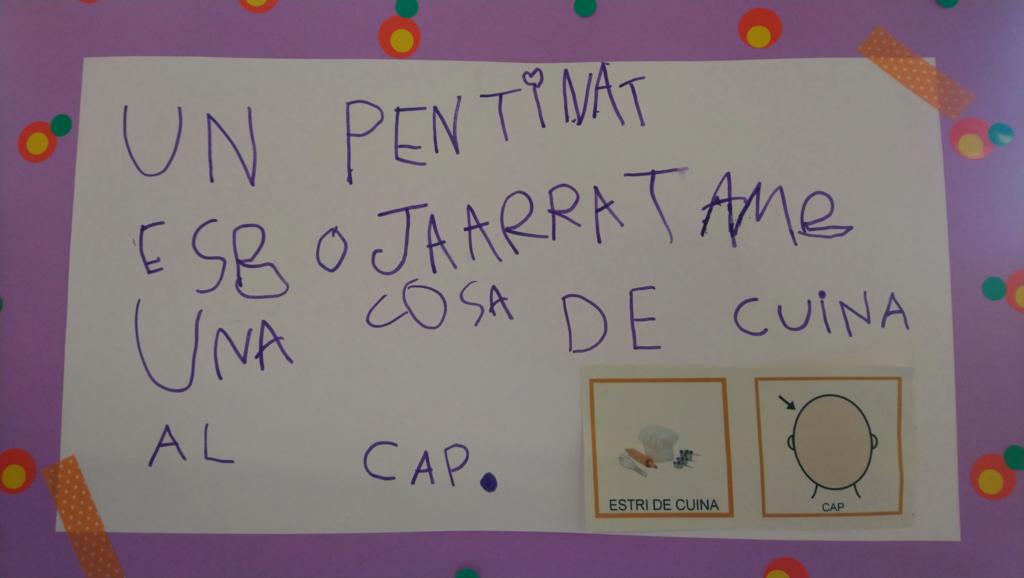 UN PENTINAT
ESBOJAARRAT AMB
UNA COSA DE CUINA
AL CAP.
ESTRI DE CUINA
CAP